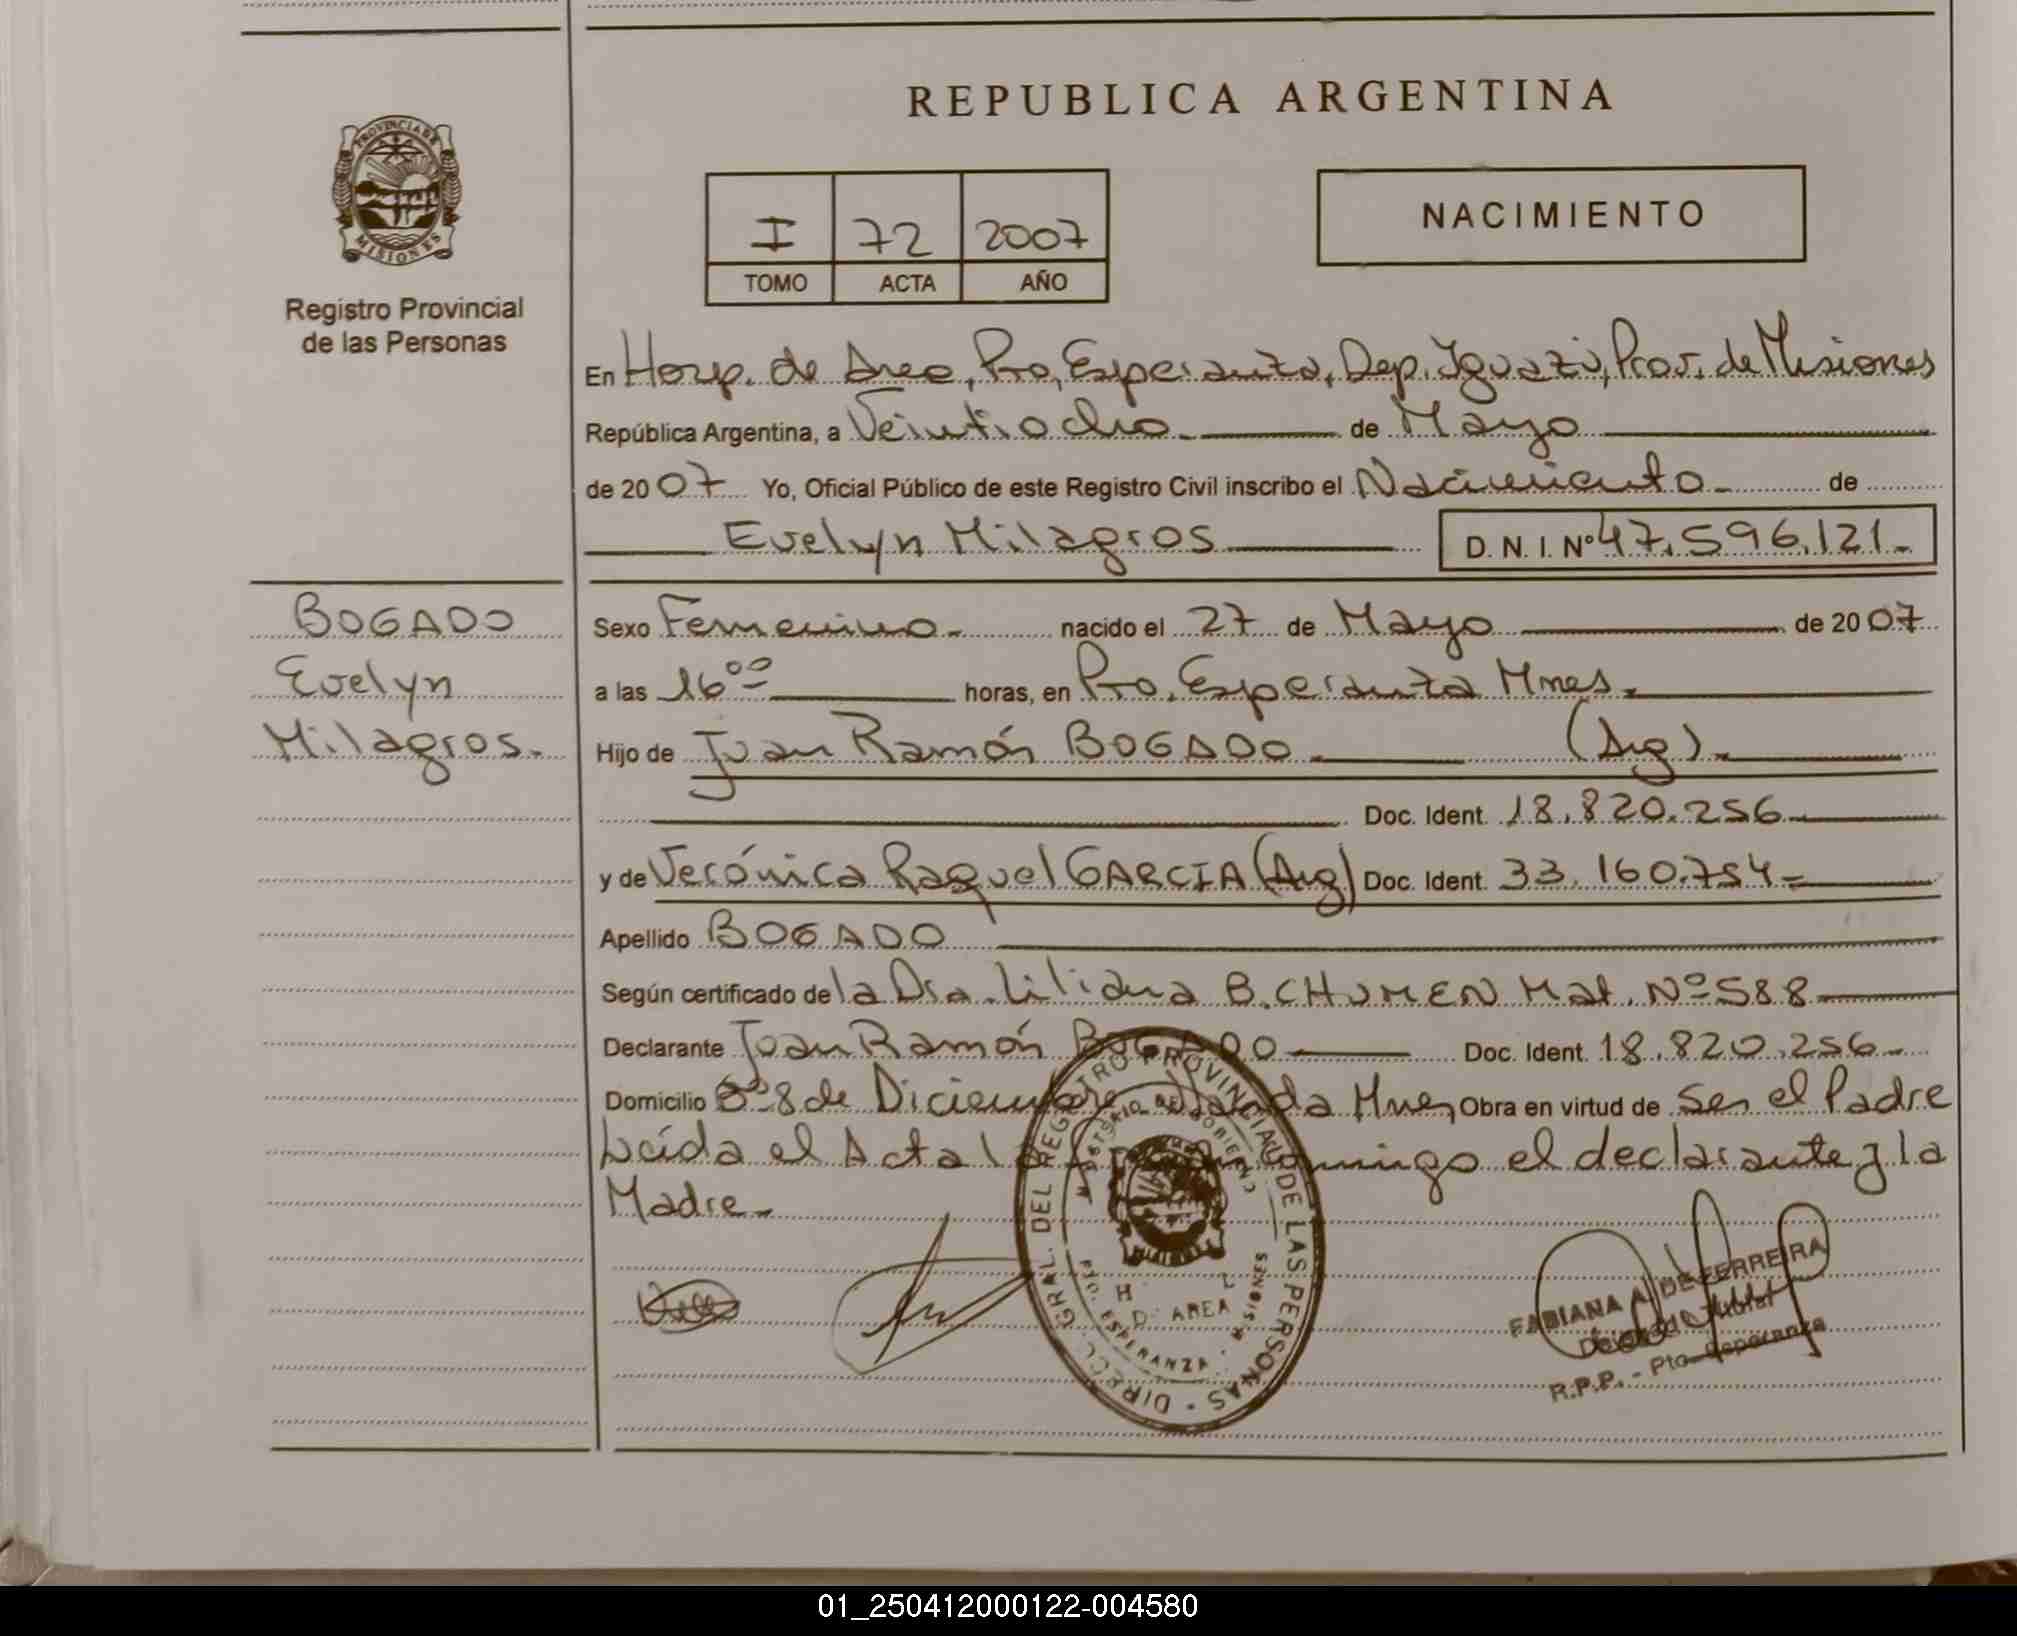 REPUBLICA ARGENTINA
PROVINCIA DE
MISIONES
Registro Provincial
de las Personas
I 72 2007
TOMO ACTA AÑO
NACIMIENTO
En Hosp. de Area, Pto, Esperanza, Dep. Iguazú, Prov. de Misiones
República Argentina, a Veintiocho de Mayo
de 2007 Yo, Oficial Público de este Registro Civil inscribo el Nacimiento de
Evelyn Milagros D. N. I. Nº 47.596.121.-
BOGADO
Evelyn
Milagros.-
Sexo Femenino.- nacido el 27 de Mayo de 2007
a las 16⁰⁰ horas, en Pto. Esperanza Mnes.
Hijo de Juan Ramón BOGADO (Arg).-
Doc. Ident. 18.820.256
y de Verónica Raquel GARCIA (Arg) Doc. Ident. 33.160.754-
Apellido BOGADO
Según certificado de la Dra. Liliana B. CHUMEN Mat. Nº 588
Declarante Juan Ramón BOGADO Doc. Ident. 18.820.256-
Domicilio Bº 8 de Diciembre Wanda Mnes, Obra en virtud de ser el Padre
Leída el Acta la el declarante y la
Madre.-
DIRECC. GRAL. DEL REGISTRO PROVINCIAL DE LAS PERSONAS
MINISTERIO DE GOBIERNO
D. AREA
PTO. ESPERANZA - MISIONES
FABIANA A. DE FERREIRA
R.P.P. - Pto. Esperanza
01_250412000122-004580